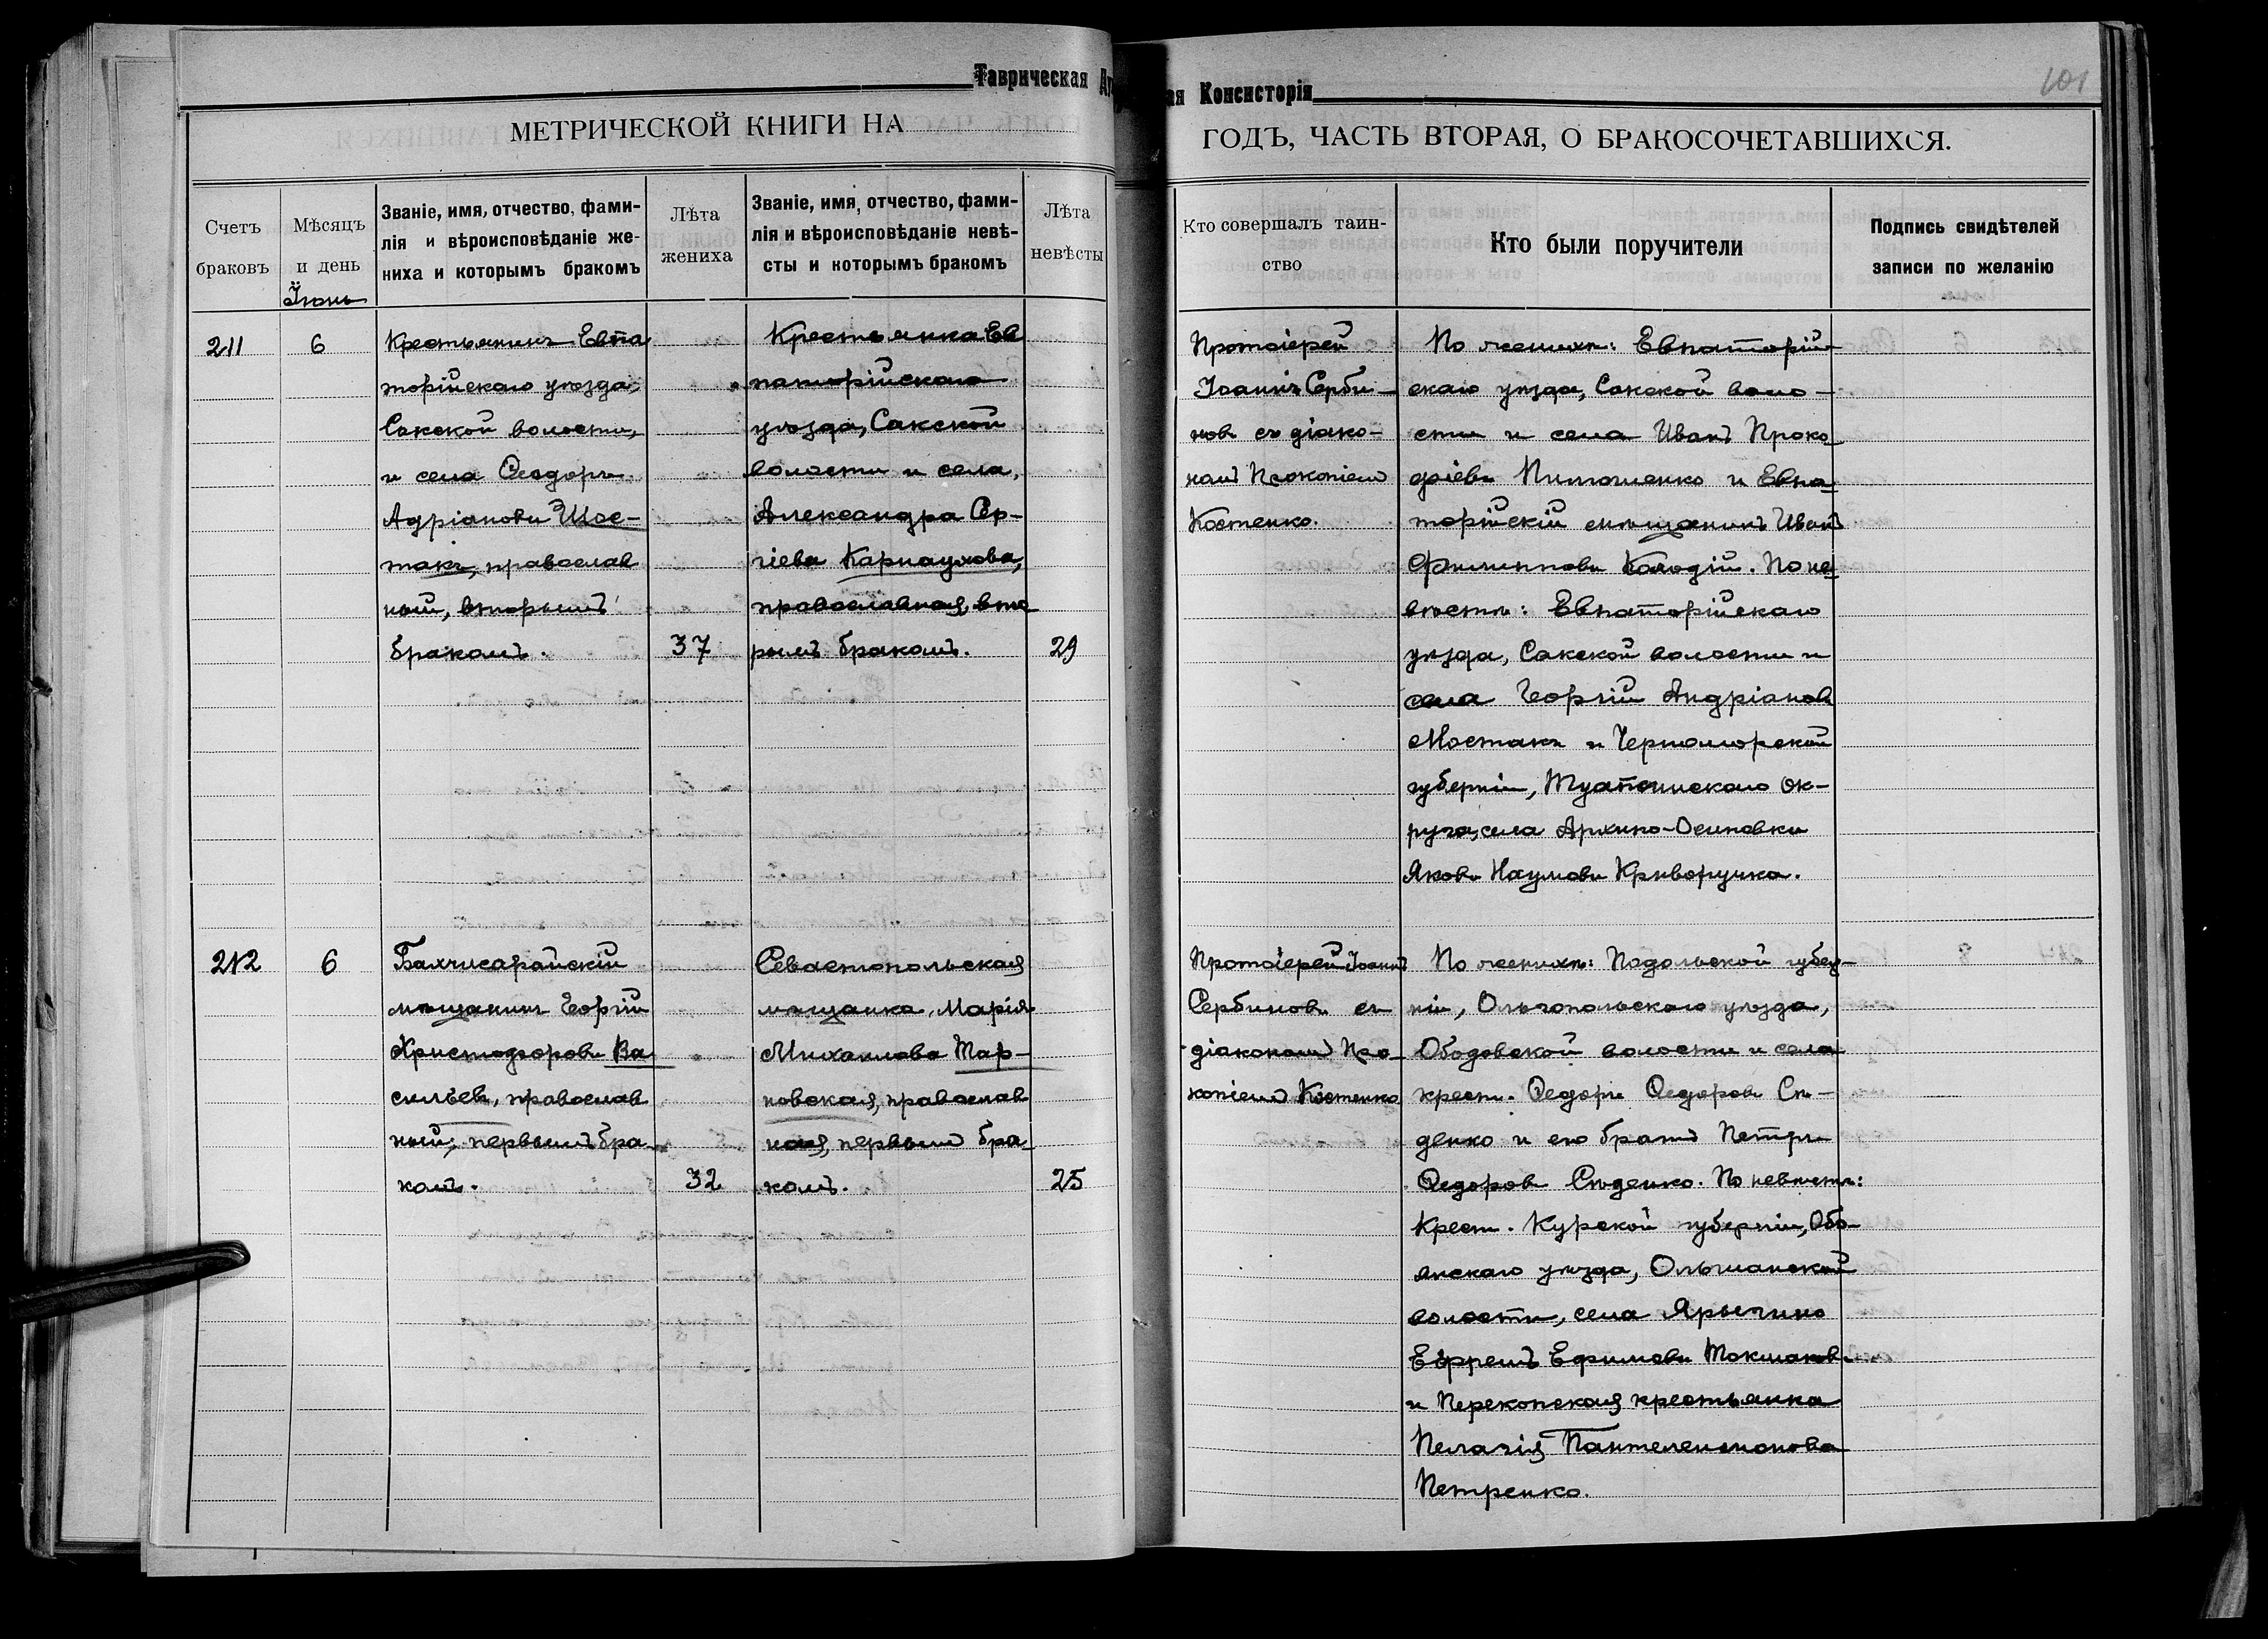 Таврическая Ду
ая Консисторія
101
МЕТРИЧЕСКОЙ КНИГИ НА
ГОДЪ, ЧАСТЬ ВТОРАЯ, О БРАКОСОЧЕТАВШИХСЯ.
Счетъ
браковъ
Мѣсяцъ
и день
Званіе, имя, отчество, фами-
лія и вѣроисповѣданіе же-
ниха и которымъ бракомъ
Лѣта
жениха
Званіе, имя, отчество, фами-
лія и вѣроисповѣданіе невѣ-
сты и которымъ бракомъ
Лѣта
невѣсты
Кто совершалъ таин-
ство
Кто были поручители
Подпись свидѣтелей
записи по желанію
Іюнь
211
6
Крестьянинъ Евпа
торійскаго уѣзда,
Сакской волости,
и села Ѳеодоръ
Адріановъ Шос-
такъ, православ
ный, вторымъ
бракомъ.
37
Крестьянка Ев
паторійскаго
уѣзда, Сакской
волости и села,
Александра Сер-
гіева Карнаухова,
православная, вто
рымъ бракомъ.
29
Протоіерей
Іоаннъ Серби-
новъ съ діако-
номъ Прокопіемъ
Костенко.
По женихѣ: Евпаторій-
скаго уѣзда, Сакской воло-
сти и села Иванъ Проко
фіевъ Литошенко и Евпа-
торійскій мѣщанинъ Иванъ
Филипповъ Колодій. По не-
вѣстѣ: Евпаторійскаго
уѣзда, Сакской волости и
села Георгій Андріановъ
Шостакъ и Черноморской
губерніи, Туапсинскаго ок-
руга, села Архипо-Осиповки
Яковъ Наумовъ Криворучка.
212
6
Бахчисарайскій
мѣщанинъ Георгій
Христофоровъ Ва
сильевъ, православ
ный, первымъ бра-
комъ.
32
Севастопольская
мѣщанка, Марія
Михаилова Тар-
новская, православ
ная, первымъ бра-
комъ.
25
Протоіерей Іоаннъ
Сербиновъ съ
діакономъ Про-
копіемъ Костенко
По женихѣ: Подольской губер-
ніи, Ольгопольскаго уѣзда,
Ободовской волости и села
крест. Ѳедоръ Ѳедоровъ Сѣ-
денко и его братъ Петръ
Ѳедоровъ Сѣденко. По невѣстѣ:
Крест. Курской губерніи, Обо-
янскаго уѣзда, Ольшанской
волости, села Ярыгино
Ефремъ Ефимовъ Токмаковъ
и Перекопская крестьянка
Пелагія Пантелеимонова
Петренко.